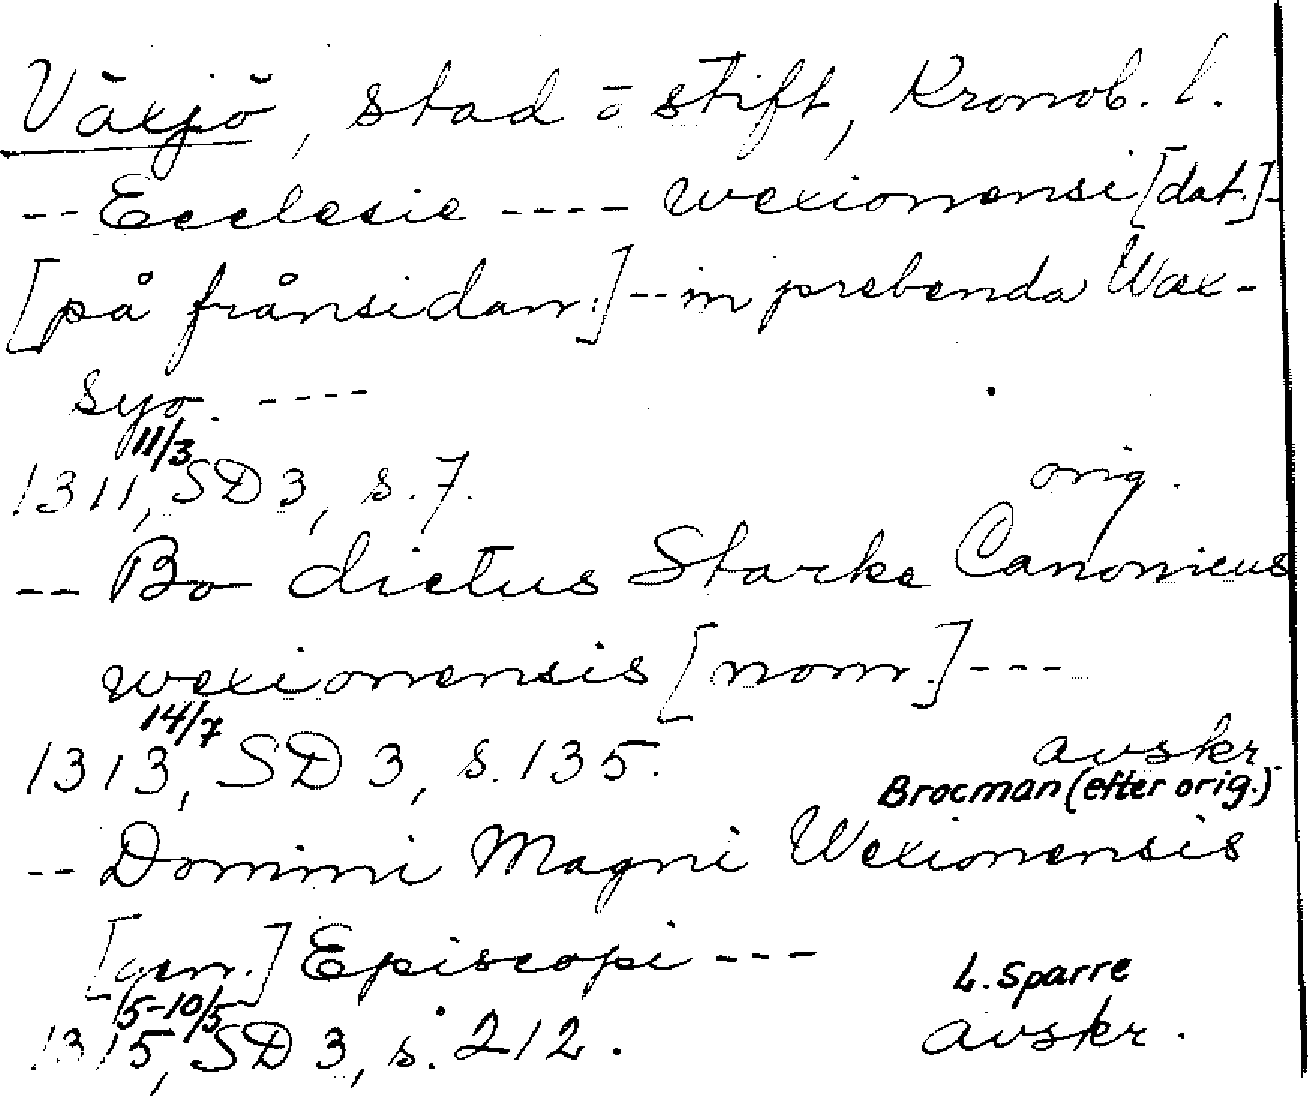 Växjö, stad o stift, Kronob. l.
-- Ecclesie ---- wexionensi [dat.]-
[på frånsidan:] -- in prebenda Wax-
syo. ----
11/3
1311, SD 3, s. 7. orig.
-- Bo dictus Starke Canonicus
wexionensis [nom.] ---
14/7
1313, SD 3, s. 135. avskr.
Brocman (efter orig.)
-- Domini Magni Wexionensis
[gen.] Episcopi ---
L. Sparre
5-10/5
1315, SD 3, s. 212. avskr.